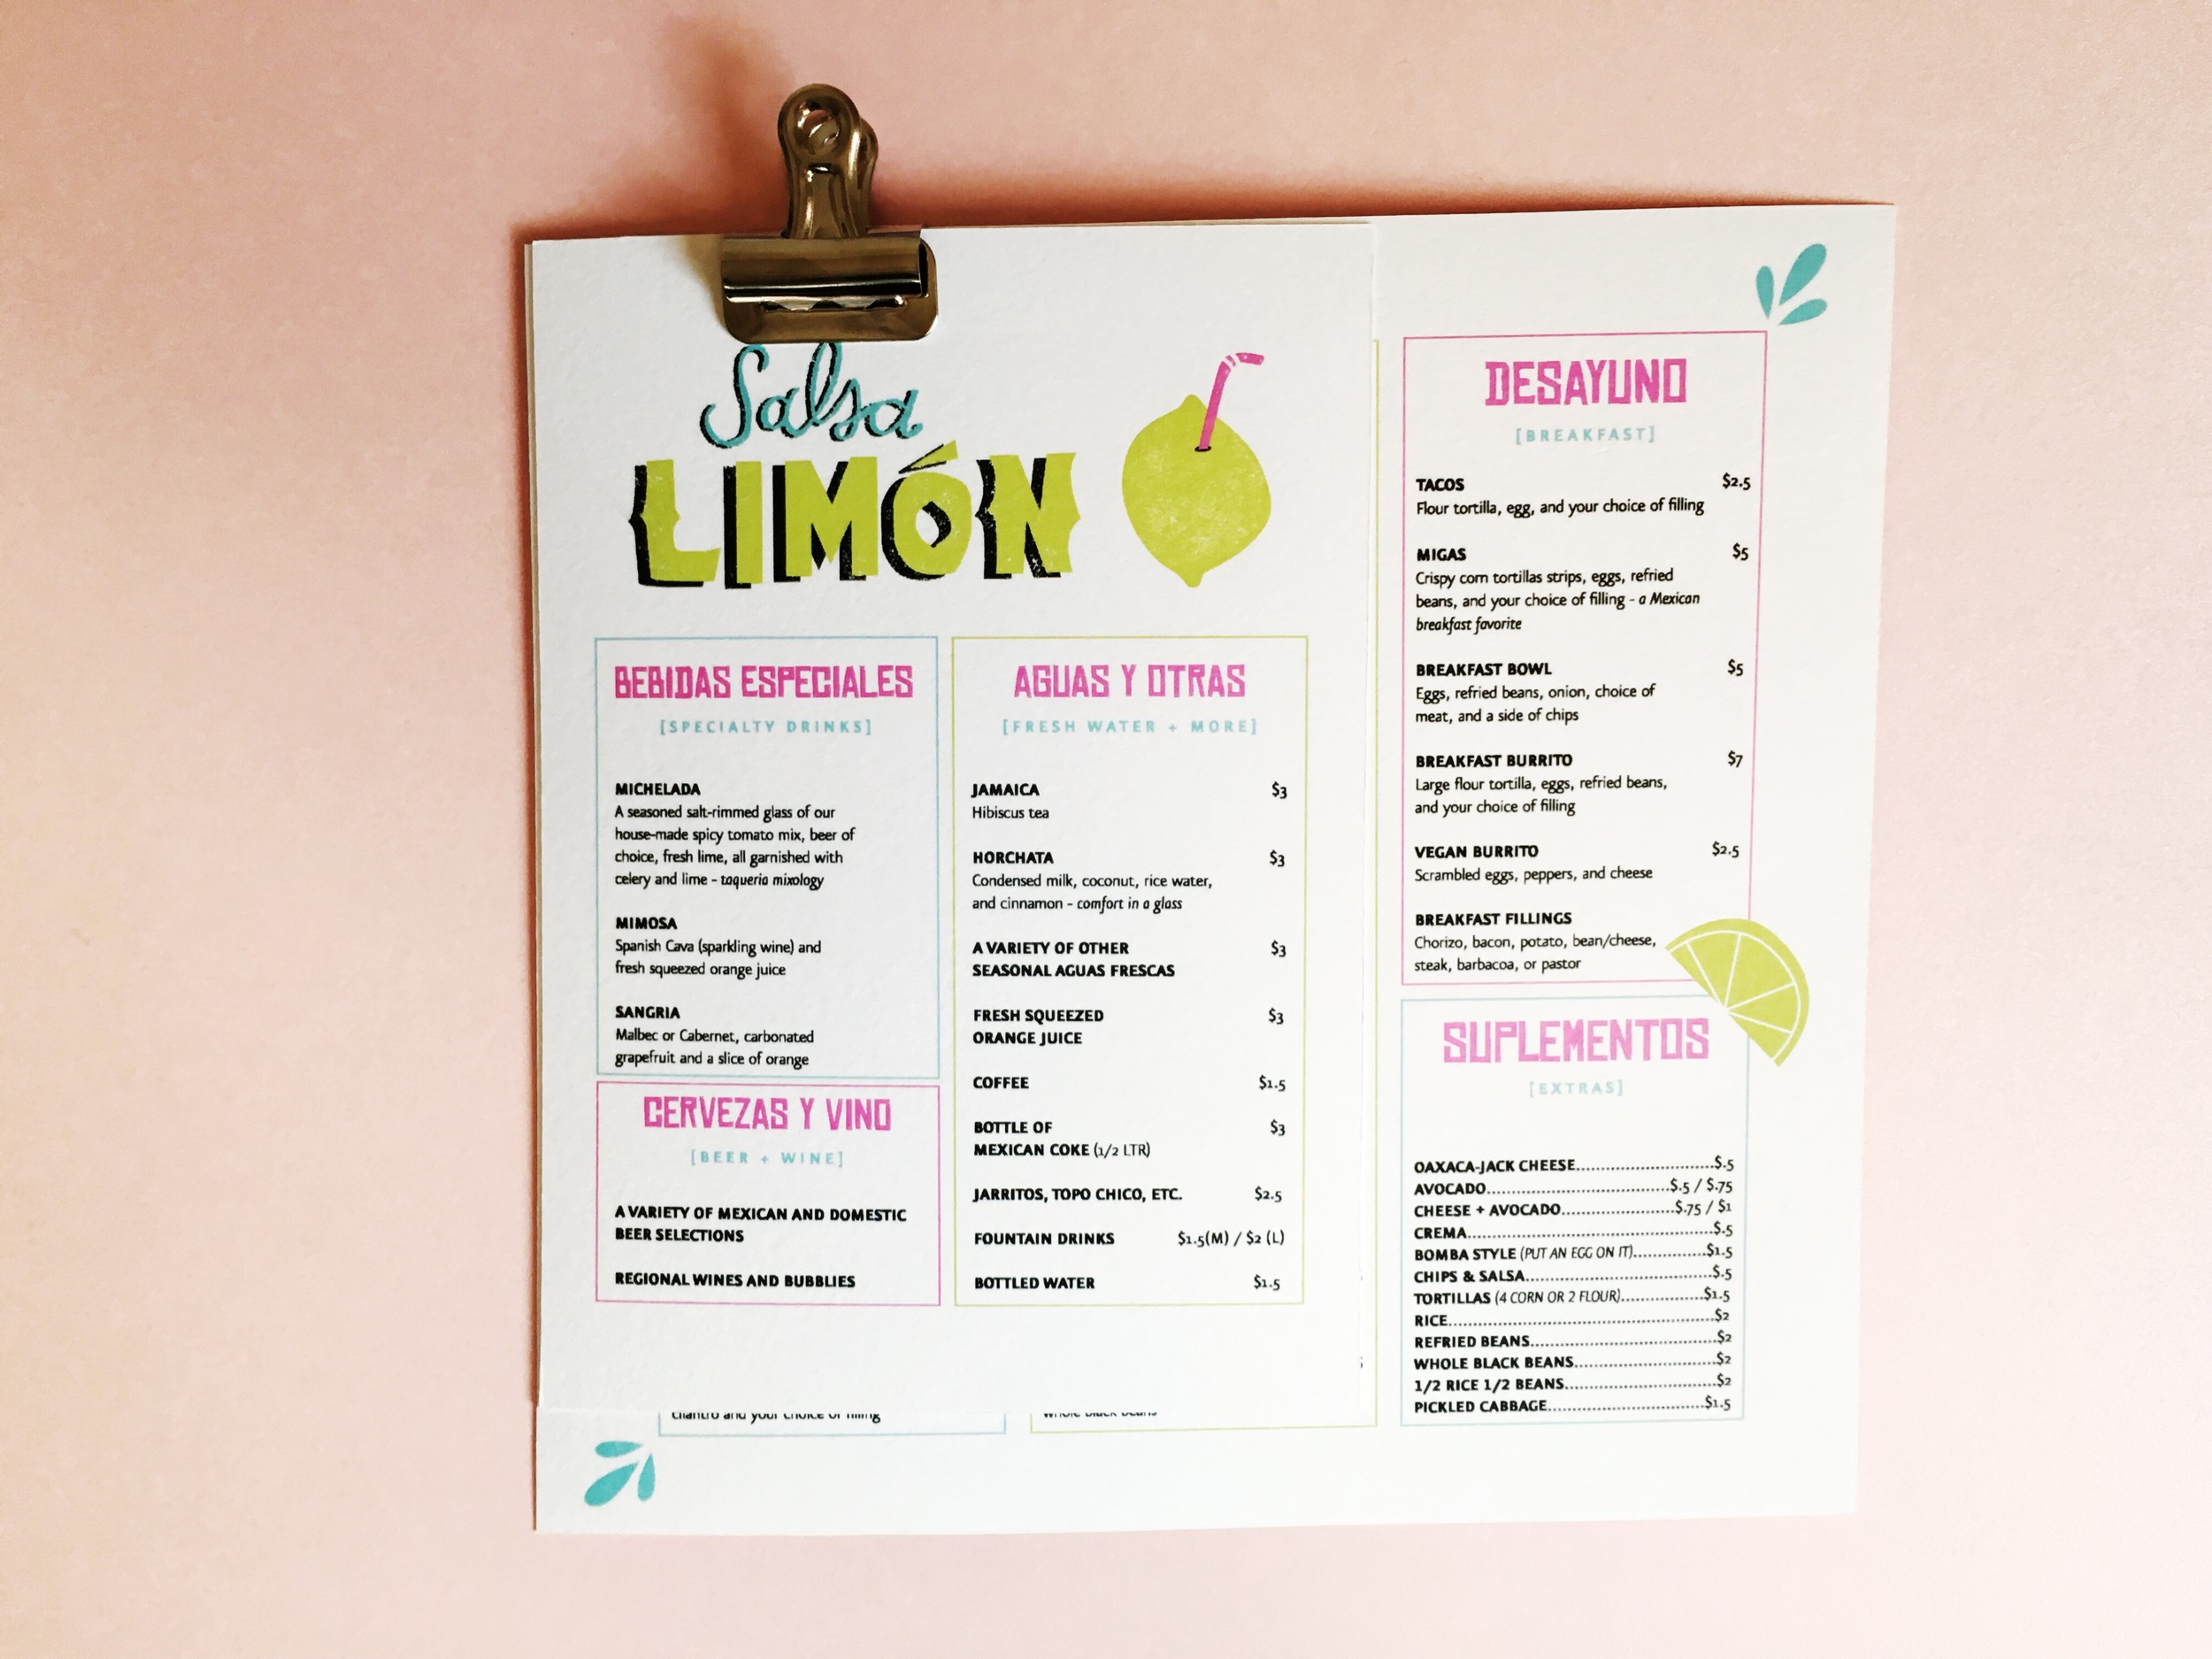 Salsa
LIMÓN
BEBIDAS ESPECIALES
[SPECIALTY DRINKS]
MICHELADA
A seasoned salt-rimmed glass of our
house-made spicy tomato mix, beer of
choice, fresh lime, all garnished with
celery and lime - taqueria mixology
MIMOSA
Spanish Cava (sparkling wine) and
fresh squeezed orange juice
SANGRIA
Malbec or Cabernet, carbonated
grapefruit and a slice of orange
CERVEZAS Y VINO
[BEER + WINE]
A VARIETY OF MEXICAN AND DOMESTIC
BEER SELECTIONS
REGIONAL WINES AND BUBBLIES
AGUAS Y OTRAS
[FRESH WATER + MORE]
JAMAICA $3
Hibiscus tea
HORCHATA $3
Condensed milk, coconut, rice water,
and cinnamon - comfort in a glass
A VARIETY OF OTHER $3
SEASONAL AGUAS FRESCAS
FRESH SQUEEZED $3
ORANGE JUICE
COFFEE $1.5
BOTTLE OF $3
MEXICAN COKE (1/2 LTR)
JARRITOS, TOPO CHICO, ETC. $2.5
FOUNTAIN DRINKS $1.5(M) / $2 (L)
BOTTLED WATER $1.5
cilantro and your choice of filling
whole black beans
DESAYUNO
[BREAKFAST]
TACOS $2.5
Flour tortilla, egg, and your choice of filling
MIGAS $5
Crispy corn tortillas strips, eggs, refried
beans, and your choice of filling - a Mexican
breakfast favorite
BREAKFAST BOWL $5
Eggs, refried beans, onion, choice of
meat, and a side of chips
BREAKFAST BURRITO $7
Large flour tortilla, eggs, refried beans,
and your choice of filling
VEGAN BURRITO $2.5
Scrambled eggs, peppers, and cheese
BREAKFAST FILLINGS
Chorizo, bacon, potato, bean/cheese,
steak, barbacoa, or pastor
SUPLEMENTOS
[EXTRAS]
OAXACA-JACK CHEESE..............................$.5
AVOCADO........................................$.5 / $.75
CHEESE + AVOCADO.........................$.75 / $1
CREMA......................................................$.5
BOMBA STYLE (PUT AN EGG ON IT)................$1.5
CHIPS & SALSA.........................................$.5
TORTILLAS (4 CORN OR 2 FLOUR)..................$1.5
RICE...........................................................$2
REFRIED BEANS.........................................$2
WHOLE BLACK BEANS...............................$2
1/2 RICE 1/2 BEANS..................................$2
PICKLED CABBAGE...................................$1.5